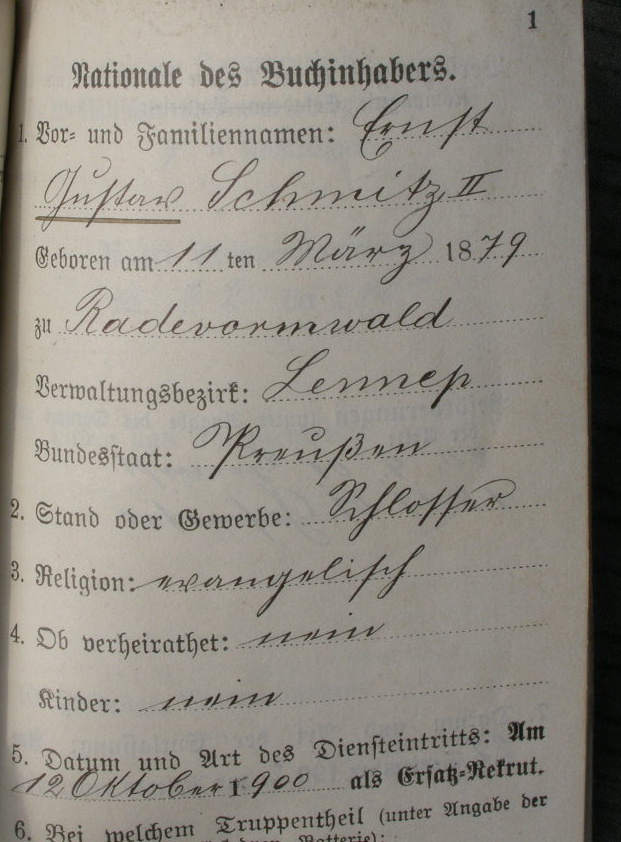 1
Nationale des Buchinhabers.
1. Vor- und Familiennamen: Ernst
Gustav Schmitz II
Geboren am 11 ten März 1879
zu Radevormwald
Verwaltungsbezirk: Lennep
Bundesstaat: Preußen
2. Stand oder Gewerbe: Schlosser
3. Religion: evangelisch
4. Ob verheirathet: nein
Kinder: nein
5. Datum und Art des Diensteintritts: Am
12 Oktober 1900 als Ersatz-Rekrut.
6. Bei welchem Truppentheil (unter Angabe der
Batterie):